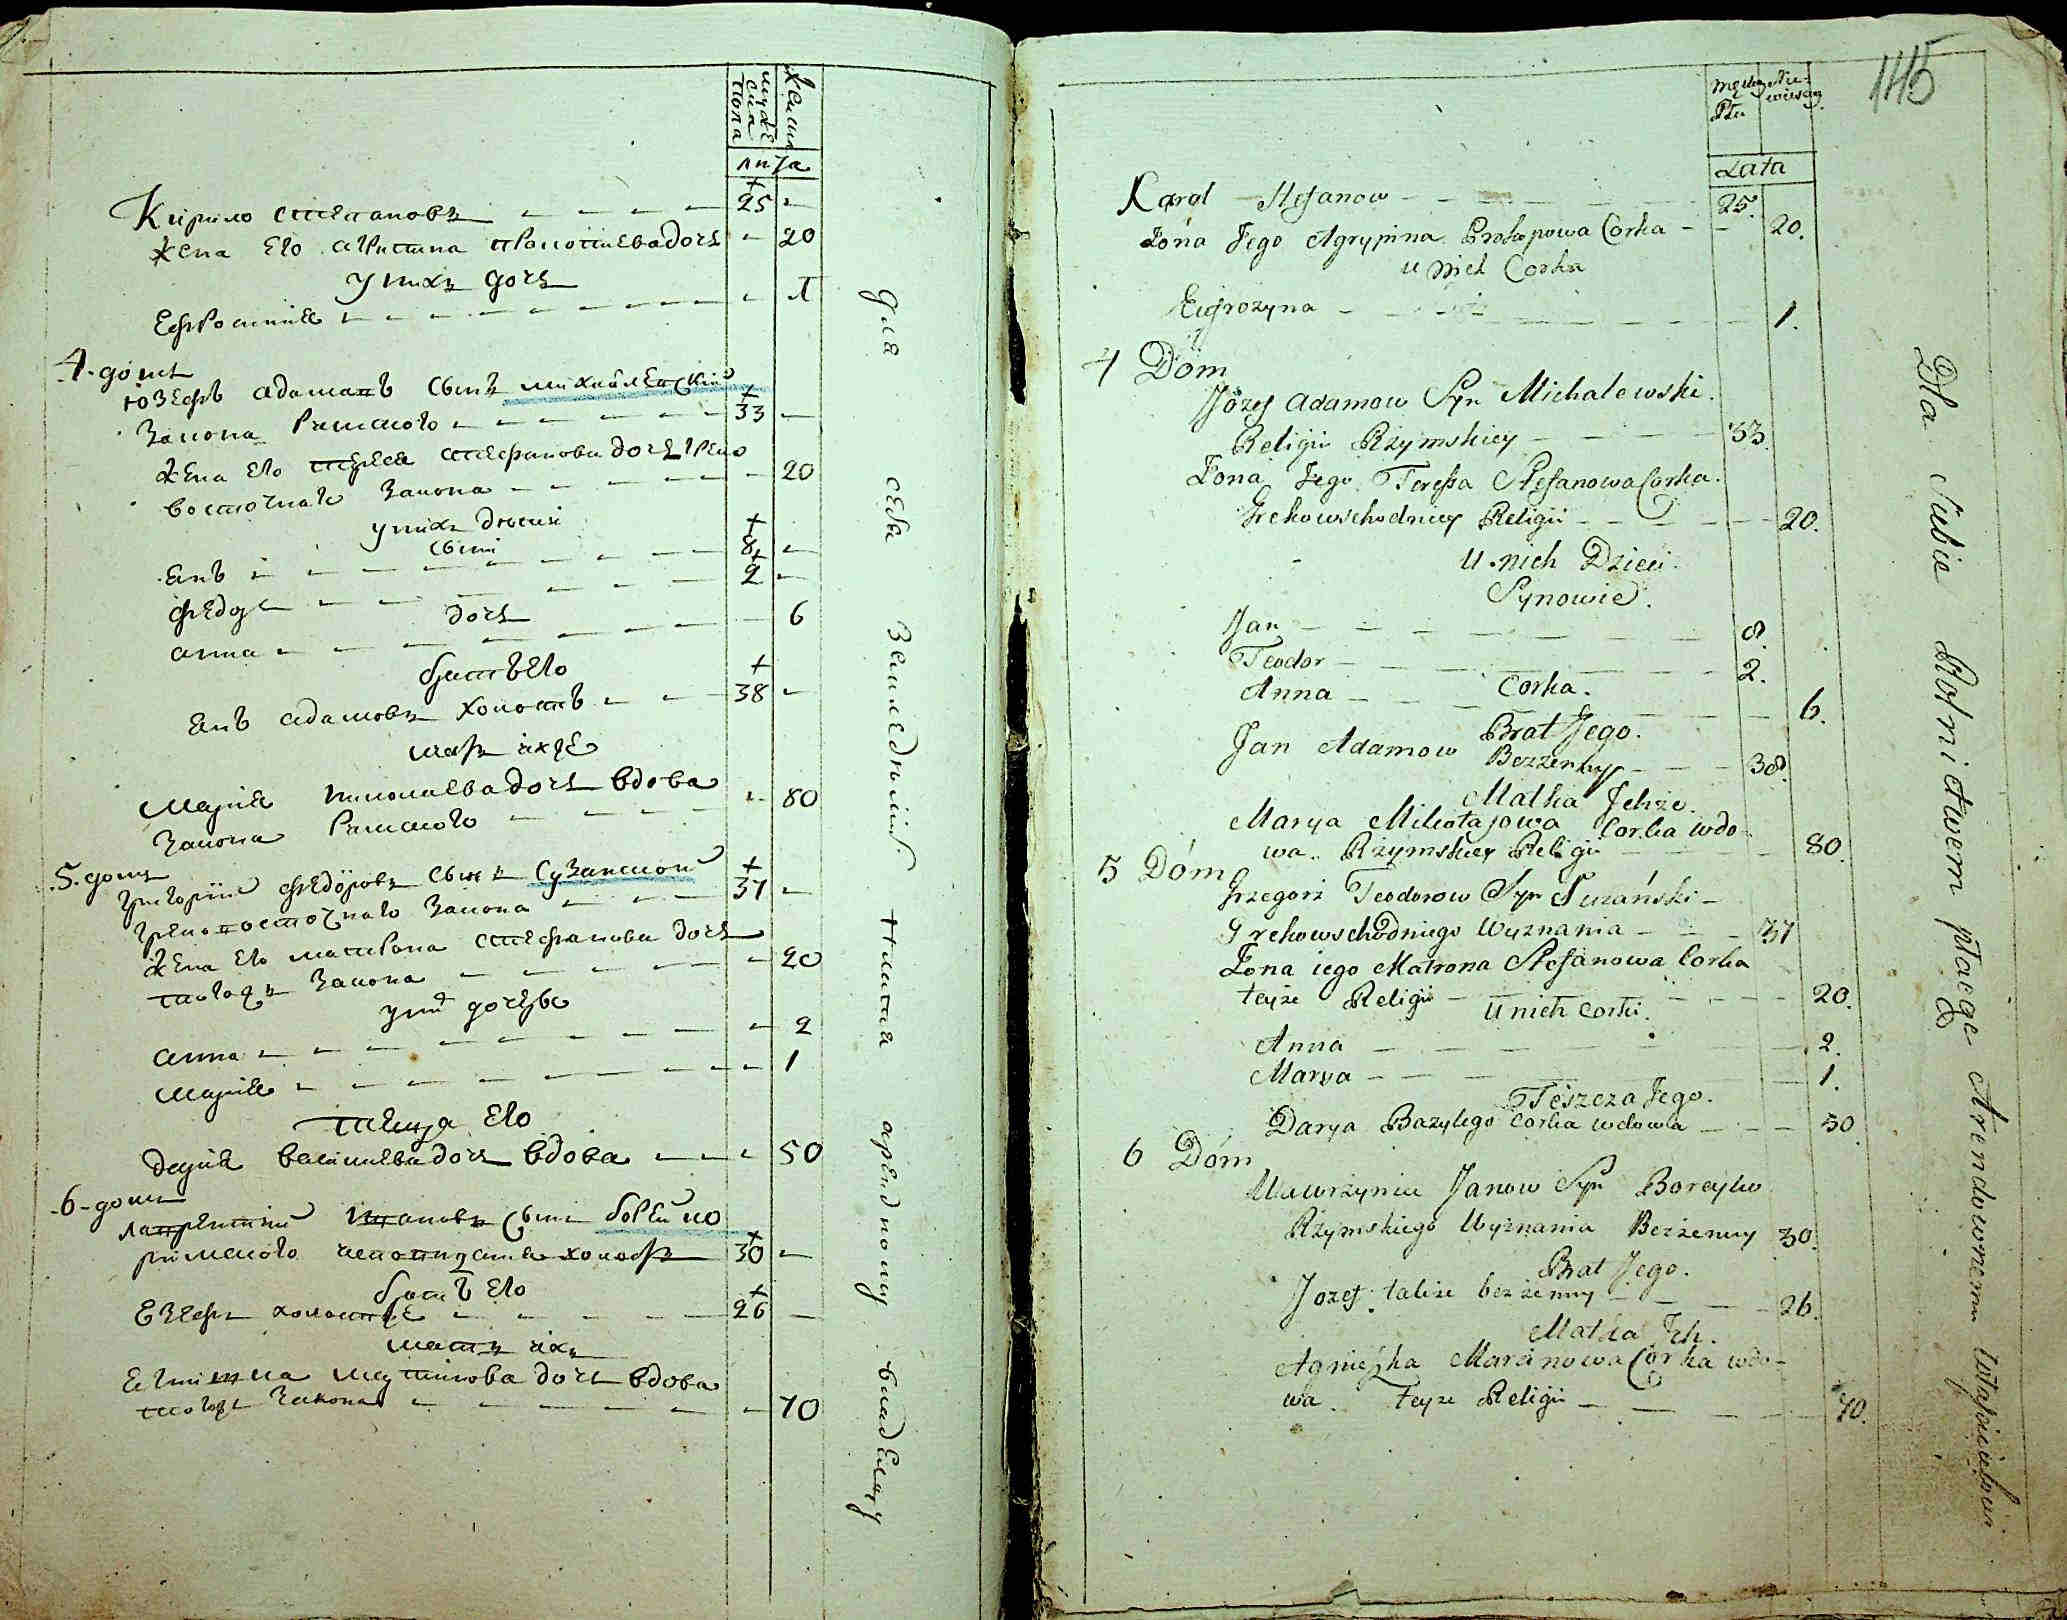 мужеска пола
женска
лѣта
Кирило Степановъ 25
жена его Агрипина Прокопиева дочь 20
у нихъ дочь
Ефросиния 1
4 домъ
Юзефъ Адамовъ сынъ Михайлевский
закона римского 33
жена его Тереса Стефанова дочь греко
восточнаго закона 20
у нихъ дѣти
сыни
Янъ 8
Федоръ 2
дочь
Анна 6
братъ его
Янъ Адамовъ холостъ 38
мать ихже
Мария Николаева дочь вдова
закона римского 80
5 домъ
Григорий Федоровъ сынъ Сузанской
грековосточнаго закона 37
жена его Матрона Стефанова дочь
тогожъ закона 20
у них дочерѣ
Анна 2
Мария 1
теща его
Дария Василиева дочь вдова 50
6 домъ
Лаврентий Ивановъ сынъ Борейко
римского холостъ 30
братъ его
Езефъ холостъ же 26
мать ихъ
Мартинова дочь вдова
тогожъ закона 70
для себя земледѣлиемъ платя арендному владелцу
145
Męskiey Płci
Niewieściey
Lata
Karol Stefanow 25.
Żona Jego Agrypina Prokopowa Corka 20.
u nich Corka
Eufrozyna 1.
4 Dom
Józef Adamow Syn Michalewski.
Religii Rzymskiey 33.
Żona Jego Teressa Stefanowa Corka.
Grekowschodniey Religii 20.
U nich Dzieci
Synowie.
Jan 8.
Teodor 2.
Corka.
Anna 6.
Brat Jego.
Jan Adamow Bezżenny 38.
Matka Ichże.
Marya Mikołajowa Corka wdo-
wa. Rzymskiey Religii 80.
5 Dóm
Grzegorz Teodorow Syn Suzański
Grekowschodniego Wyznania 37
Żona iego Matrona Stefanowa Corka
teyże Religii 20.
U nich Corki.
Anna 2.
Marya 1.
Teszcza Jego.
Darya Bazylego Corka wdowa 50
6 Dóm
Wawrzyniec Janow Syn Boreyko
Rzymskiego Wyznania Bezżenny 30.
Brat Jego.
Jozef także bezżenny 26.
Matka Ich.
Agnieszka Marcinowa Corka wdo-
wa. Teyże Religii 70.
Dla Siebie Rolnictwem płacąc Arendownemu Włascicielowi